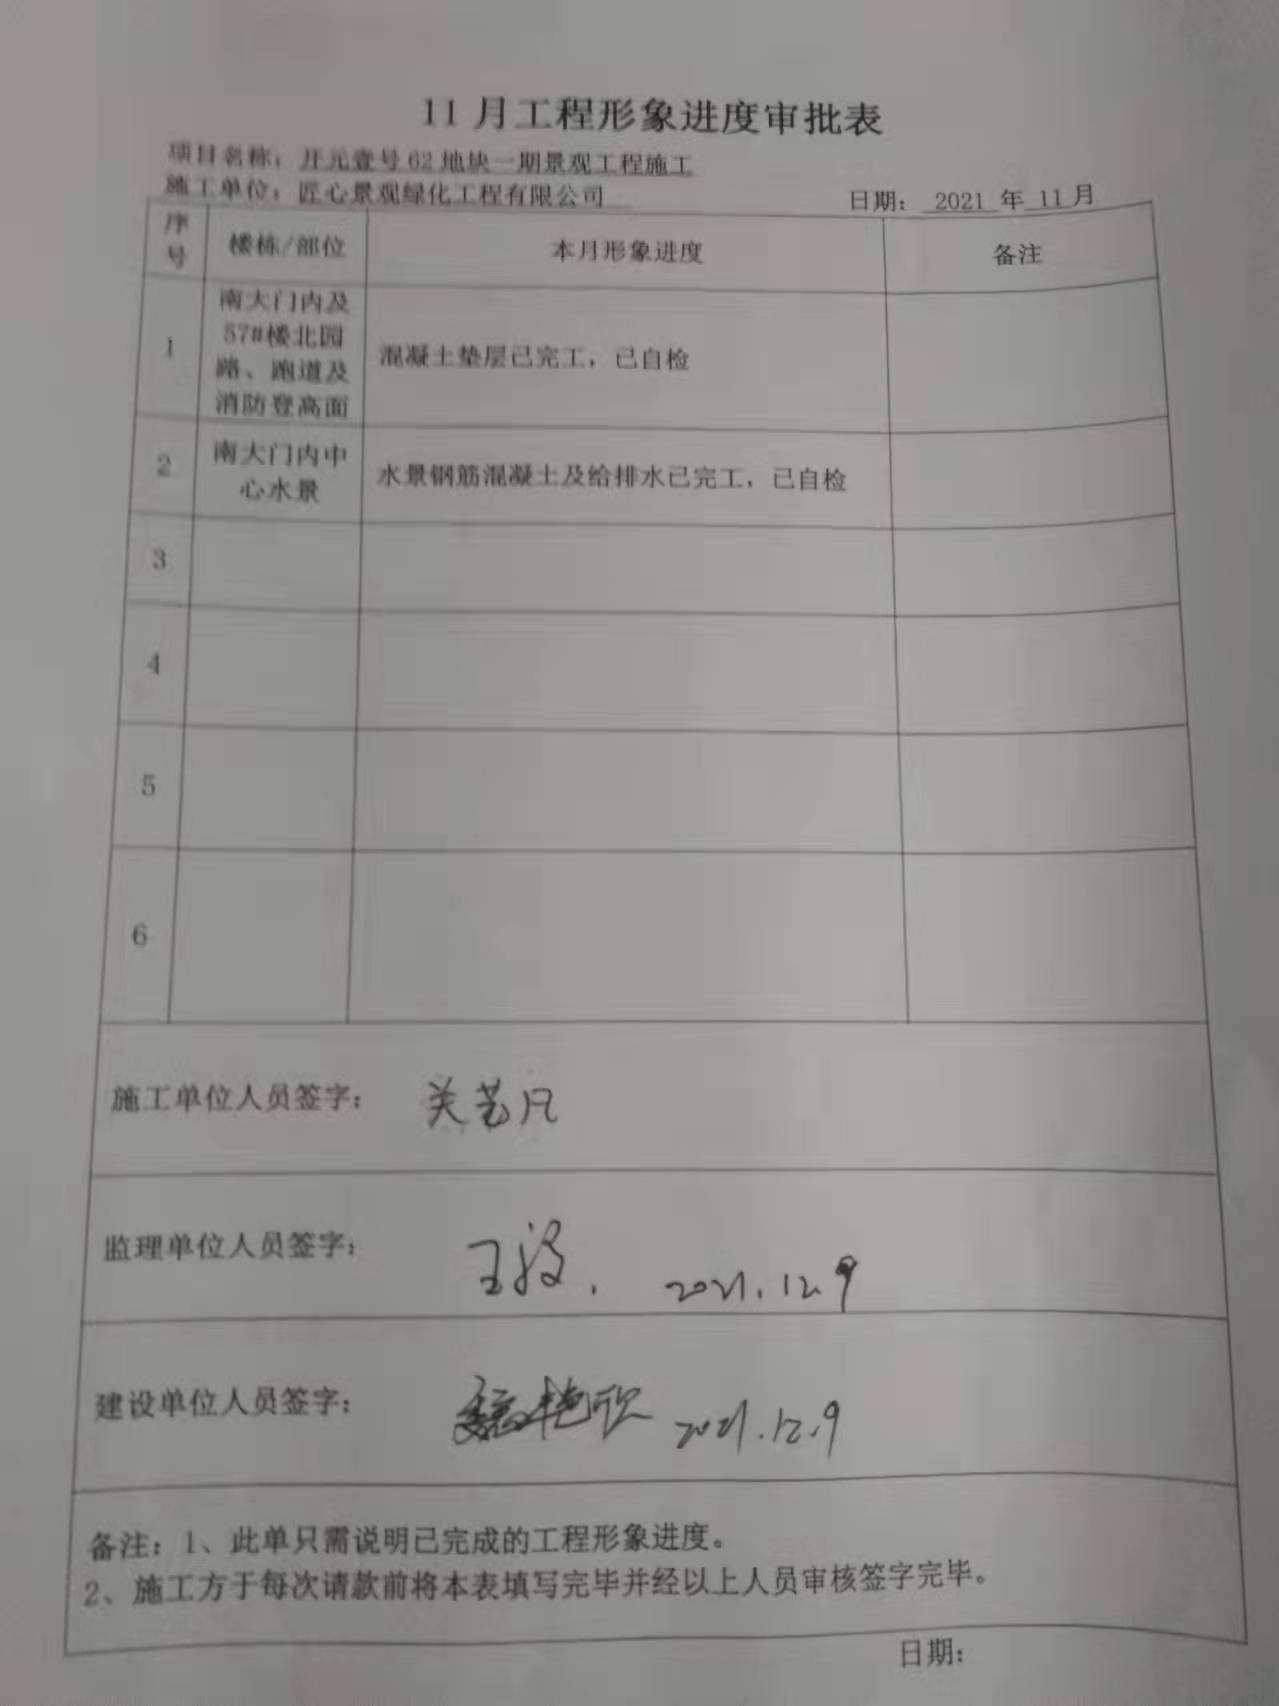 11月工程形象进度审批表
项目名称：开元壹号62地块一期景观工程施工
施工单位：匠心景观绿化工程有限公司
日期：2021年11月
序号
楼栋/部位
本月形象进度
备注
1
南大门内及
57#楼北园
路、跑道及
消防登高面
混凝土垫层已完工，已自检
2
南大门内中
心水景
水景钢筋混凝土及给排水已完工，已自检
3
4
5
6
施工单位人员签字：
关艺凡
监理单位人员签字：
王波. 2021.12.9
建设单位人员签字：
魏艳欣 2021.12.9
备注：1、此单只需说明已完成的工程形象进度。
2、施工方于每次请款前将本表填写完毕并经以上人员审核签字完毕。
日期：